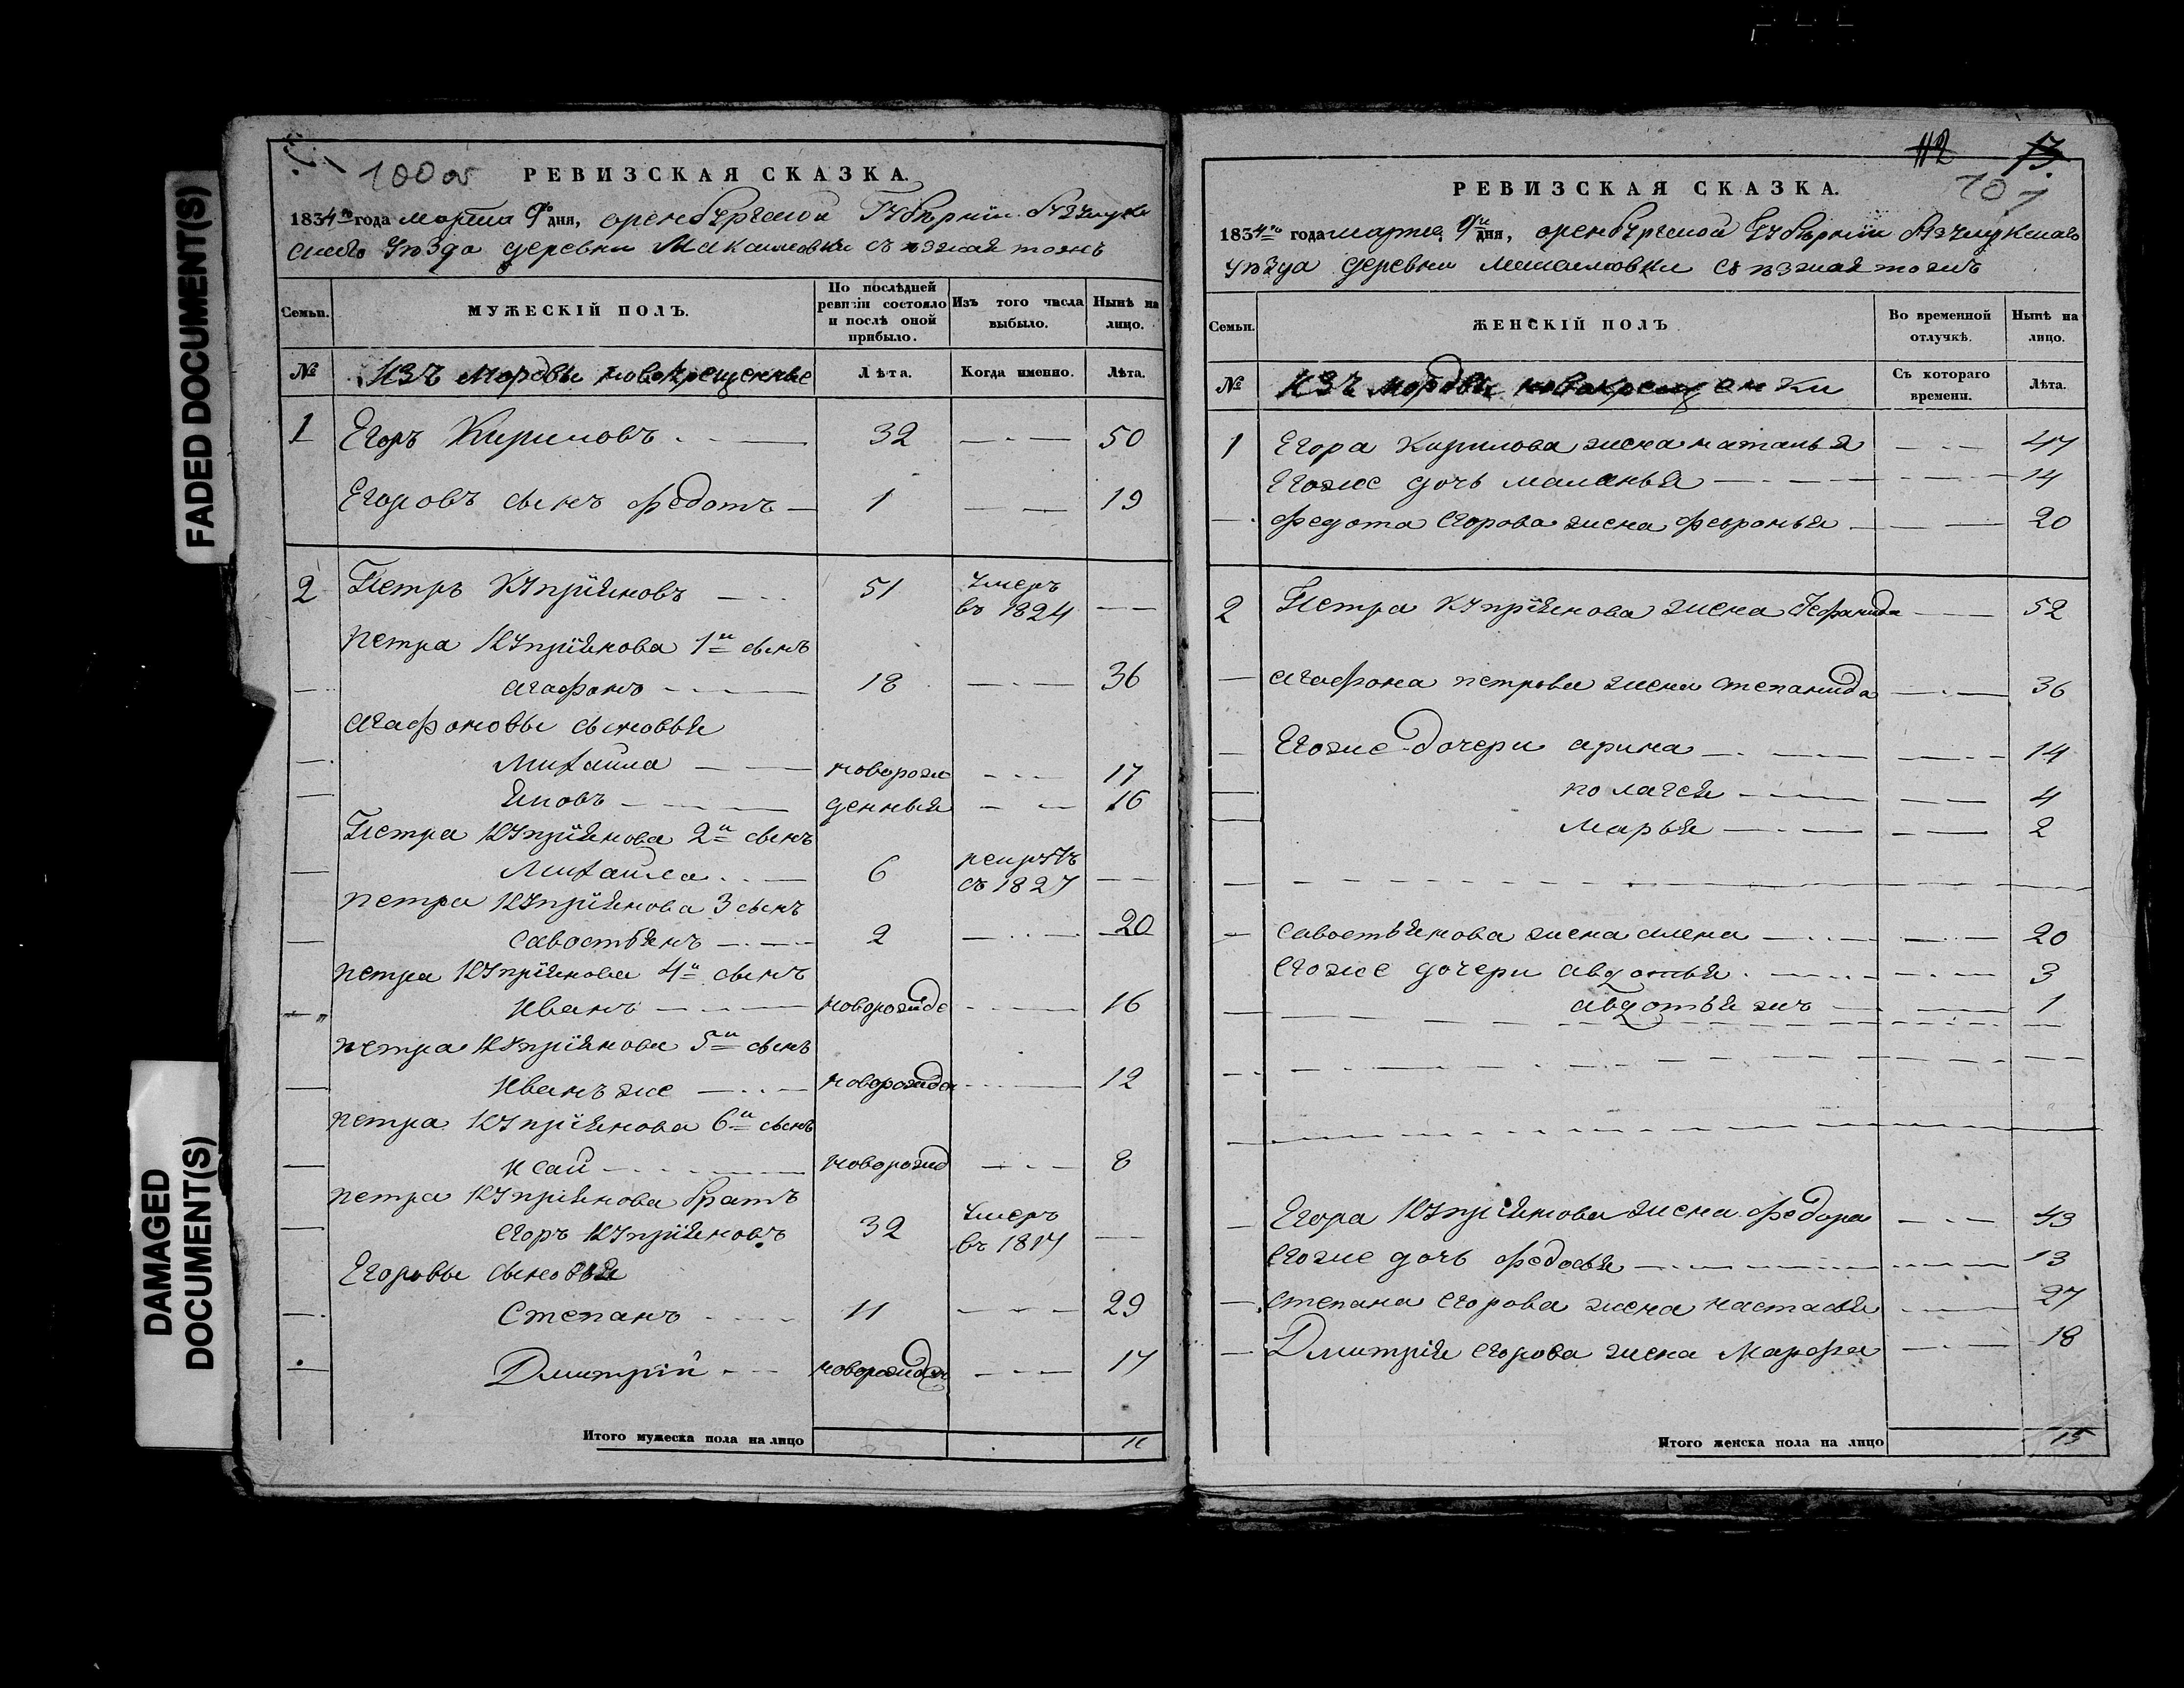 FADED DOCUMENT(S)
DAMAGED
DOCUMENT(S)
100 об
РЕВИЗСКАЯ СКАЗКА.
1834го года марта 9го дня, оренбургской Губернии
ского уезда деревни
Семьи. МУЖЕСКІЙ ПОЛЪ. По послѣдней ревизіи состояло и послѣ оной прибыло. Изъ того числа выбыло. Нынѣ на лицо.
№ Изъ мордвы новокрещенные Лѣта. Когда именно. Лѣта.
1 Егоръ Кириловъ 32 50
Егоровъ сынъ федотъ 1 19
2 Петръ Куприяновъ 51 умеръ въ 1824
петра Куприянова 1й сынъ
агафонъ 18 36
агафоновы сыновья
Михаила новорож 17
Яковъ денныя 16
Петра Куприянова 2й сынъ
Михаила 6 рекрутъ съ 1827
петра Куприянова 3 сынъ
савостьянъ 2 20
петра Куприянова 4й сынъ
иванъ новорожде 16
петра Куприянова 5й сынъ
иванъ же новорожден 12
петра Куприянова 6й сынъ
исай новорожд 8
петра Куприянова братъ
егоръ Куприяновъ 32 умеръ въ 1817
Егоровы сыновья
Степанъ 11 29
Дмитрій новорожден 17
Итого мужеска пола на лицо 11
112 73
101
РЕВИЗСКАЯ СКАЗКА.
1834го года марта 9го дня, оренбургской Губернии
уезда деревни
Семьи. ЖЕНСКІЙ ПОЛЪ Во временной отлучкѣ. Нынѣ на лицо.
№ Изъ мордвы новокрещенки Съ котораго времени. Лѣта.
1 Егора Кирилова жена наталья 47
Егоже дочь маланья 14
федота егорова жена февронья 20
2 Петра Куприянова жена 52
агафона петрова жена степанида 36
Егоже дочери арина 14
пелагея 4
Марья 2
савостьянова жена алена 20
егоже дочери авдотья 3
авдотья жъ 1
Егора Куприянова жена федора 43
егоже дочь федосья 13
степана егорова жена настасья 27
Дмитрия егорова жена Марфа 18
Итого женска пола на лицо 15